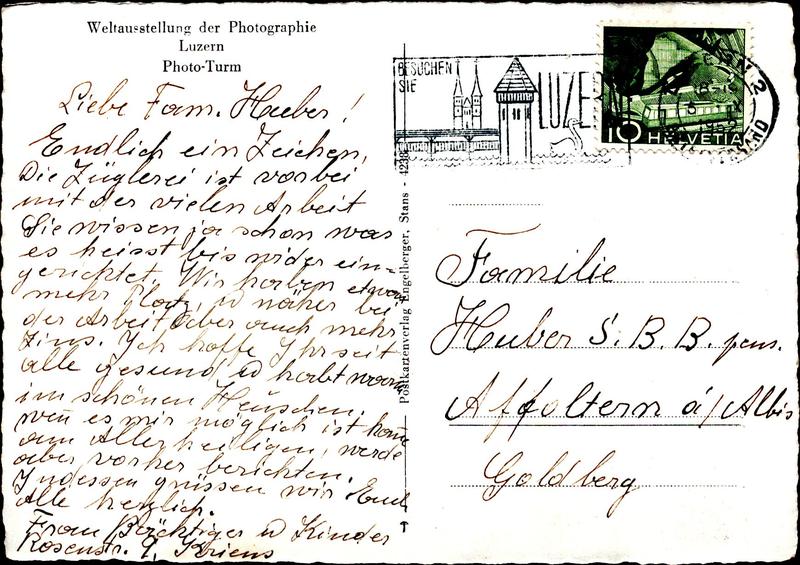 Weltausstellung der Photographie
Luzern
Photo-Turm
Liebe Fam. Huber!
Endlich ein Zeichen,
Die Züglerei ist vorbei
mit der vielen Arbeit
Sie wissen ja schon was
es heisst bis wider ein=
gerichtet. Wir haben etwas
mehr Platz, u näher bei
der Arbeit aber auch mehr
Zins. Ich hoffe Ihr seit
alle gesund u habt warm
im schönen Heuschen.
wen es mir möglich ist kome
am Allerheiligen, werde
aber vorher berichten.
Indessen grüssen wir Euch
Alle herzlich.
Frau Bächtiger u Kinder
Rosenstr. 9, Kriens
Postkartenverlag Engelberger, Stans - 4238
BESUCHEN
SIE
LUZERN
10 HELVETIA
Familie
Huber S. B. B. pens.
Affoltern a/Albis
Goldberg